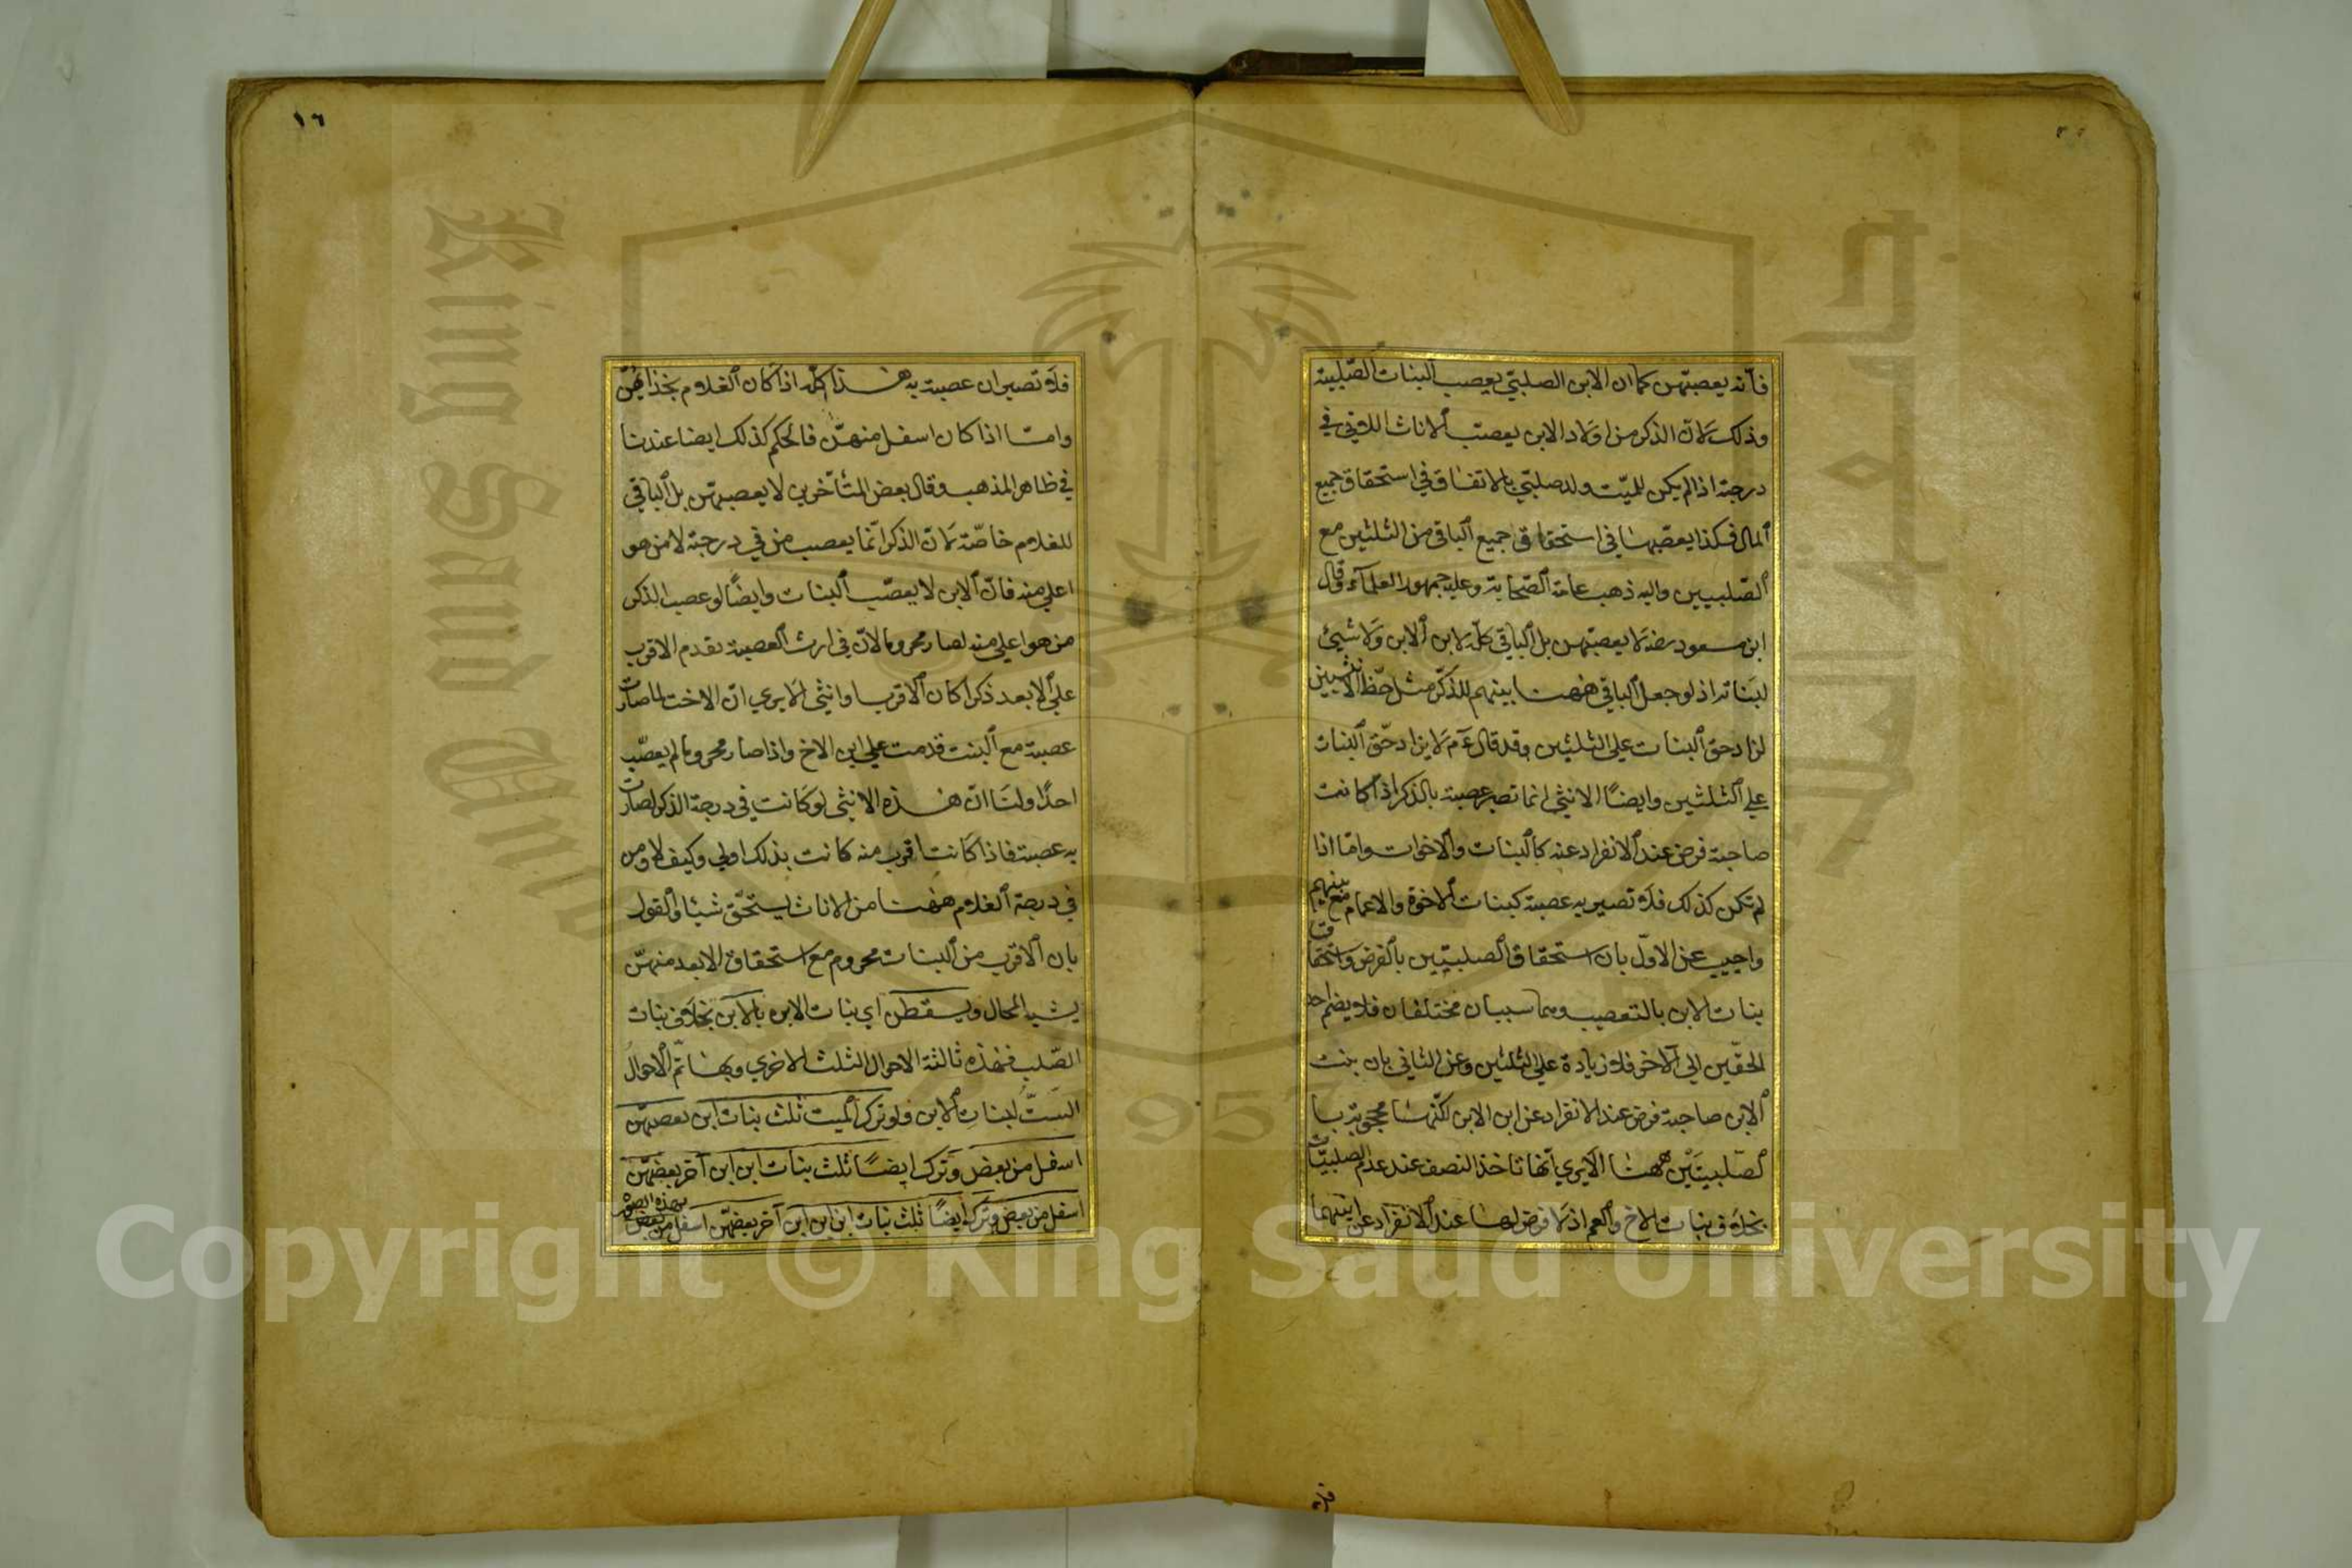 فانه يعصبهن كما ان الابن الصلبي يعصب البنات الصلبية
وذلك لان الذكر من اولاد الابن يعصب الاناث اللاتي في
درجته اذا لم يكن للميت ولد صلبي بالاتفاق في استحقاق جميع
المال فكذا يعصبها في استحقاق جميع الباقي من الثلثين مع
الصلبيين واليه ذهب عامة الصحابة وعليه جمهور العلماء وقال
ابن مسعود رضه لا يعصبهن بل الباقي كله لابن الابن ولا شيئ
لبناته اذ لو جعل الباقي ههنا بينهم للذكر مثل حظ الانثيين
لزاد حق البنات على الثلثين وقد قال عم لا يزاد حق البنات
على الثلثين وايضا الانثى انما تصير عصبة بالذكر اذا كانت
صاحبة فرض عند الانفراد عنه كالبنات والاخوات واما اذا
لم تكن كذلك فلا تصير به عصبة كبنات الاخوة والاعمام مع بنيهم
واجيب عن الاول بان استحقاق الصلبيتين بالفرض واستحقاق
بنات الابن بالتعصيب وهما سببان مختلفان فلا يضم احد
الحقين الى الاخر فلا زيادة على الثلثين وعن الثاني بان بنت
الابن صاحبة فرض عند الانفراد عن ابن الابن لكنها محجوبة با
لصلبيتين ههنا الا يرى انها تاخذ النصف عند عدم الصلبيات
بخلاف بنات الاخ والعم اذ لا فرض لها عند الانفراد عن ابنهما
فلا
١٦
فلا تصيران عصبة به هذا كله اذا كان الغلام بحذائهن
واما اذا كان اسفل منهن فالحكم كذلك ايضا عندنا
في ظاهر المذهب وقال بعض المتأخرين لا يعصبهن بل الباقي
للغلام خاصة لان الذكر انما يعصب من في درجته لا من هو
اعلى منه فان الابن لا يعصب البنات وايضا لو عصب الذكر
من هو اعلى منه لصار محروما لان في ارث العصبة يقدم الاقرب
على الابعد ذكرا كان الاقرب او انثى الا يرى ان الاخت لما صارت
عصبة مع البنت قدمت على ابن الاخ واذا صار محروما لم يعصب
احدا ولنا ان هذه الانثى لو كانت في درجة الذكر لصارت
به عصبة فاذا كانت اقرب منه كانت بذلك اولى وكيف لا ومن
في درجة الغلام ههنا من الاناث يستحق شيئا والقول
بان الاقرب من البنات محروم مع استحقاق الابعد منهن
يشبه المحال ويسقطن اي بنات الابن بالابن بخلاف بنات
الصلب فهذه ثالثة الاحوال الثلث الاخرى وبها تم الاحوال
الست لبنات الابن ولو ترك الميت ثلث بنات ابن بعضهن
اسفل من بعض وترك ايضا ثلث بنات ابن ابن آخر بعضهن
اسفل من بعض وترك ايضا ثلث بنات ابن ابن ابن آخر بعضهن اسفل من بعض بهذه الصورة
King Saud University
Copyright © King Saud University